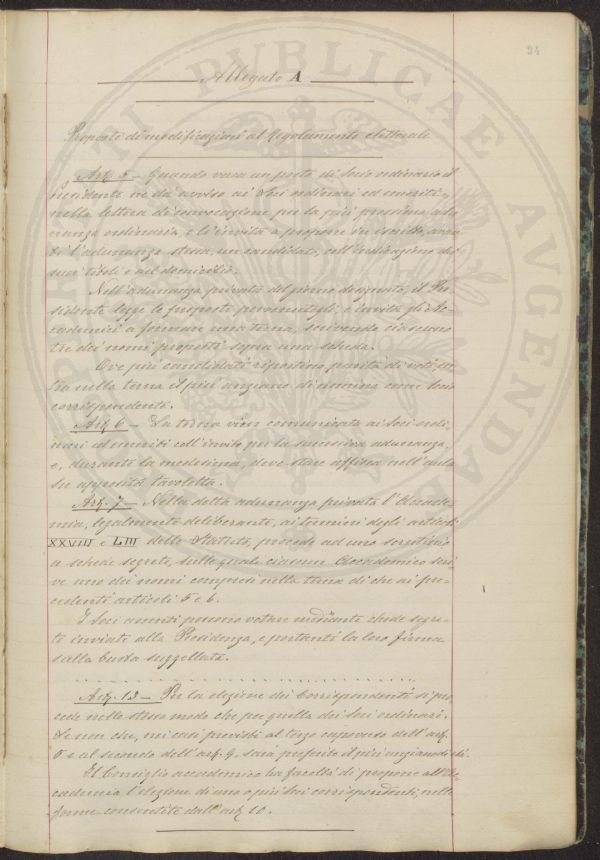 94
Allegato A
Proposte di modificazioni al Regolamento elettorale
Art. 5 — Quando vaca un posto di Socio ordinario il
Presidente ne dà avviso ai Soci ordinari ed emeriti,
nella lettera di convocazione per la più prossima adu-
nanza ordinaria, e li invita a proporre per iscritto, avan-
ti l'adunanza stessa, un candidato, coll'indicazione dei
suoi titoli e del domicilio.
Nell'adunanza privata del giorno designato, il Pre-
sidente legge le proposte pervenutegli, e invita gli Ac-
cademici a formare una terna, scrivendo ciascuno
tre dei nomi proposti sopra una scheda.
Ove più candidati riportino parità di voti, en-
tra nella terna il più anziano di nomina come Socio
corrispondente.
Art. 6 — La terna vien comunicata ai Soci ordi-
nari ed emeriti coll'invito per la successiva adunanza,
e, durante la medesima, deve stare affissa nell'aula
su apposita tavoletta.
Art. 7 — Nella detta adunanza privata l'Accade-
mia, legalmente deliberante, ai termini degli articoli
XXVIII e LIII dello Statuto, procede ad uno scrutinio
a schede segrete, sulle quali ciascun Accademico scri-
ve uno dei nomi compresi nella terna di che ai pre-
cedenti articoli 5 e 6.
I Soci assenti possono votare mediante schede segre-
te inviate alla Presidenza, e portanti la loro firma
sulla busta suggellata.
Art. 12 — Per la elezione dei Corrispondenti si pro-
cede nello stesso modo che per quella dei Soci ordinari.
Se non che, nei casi previsti al terzo capoverso dell'art.
5 e al secondo dell'art. 9, sarà preferito il più anziano di età.
Il Consiglio accademico ha facoltà di proporre all'Ac-
cademia l'elezione di uno o più Soci corrispondenti, nelle
forme consentite dall'art. 10.
PUBLICAE
AUGENDAE